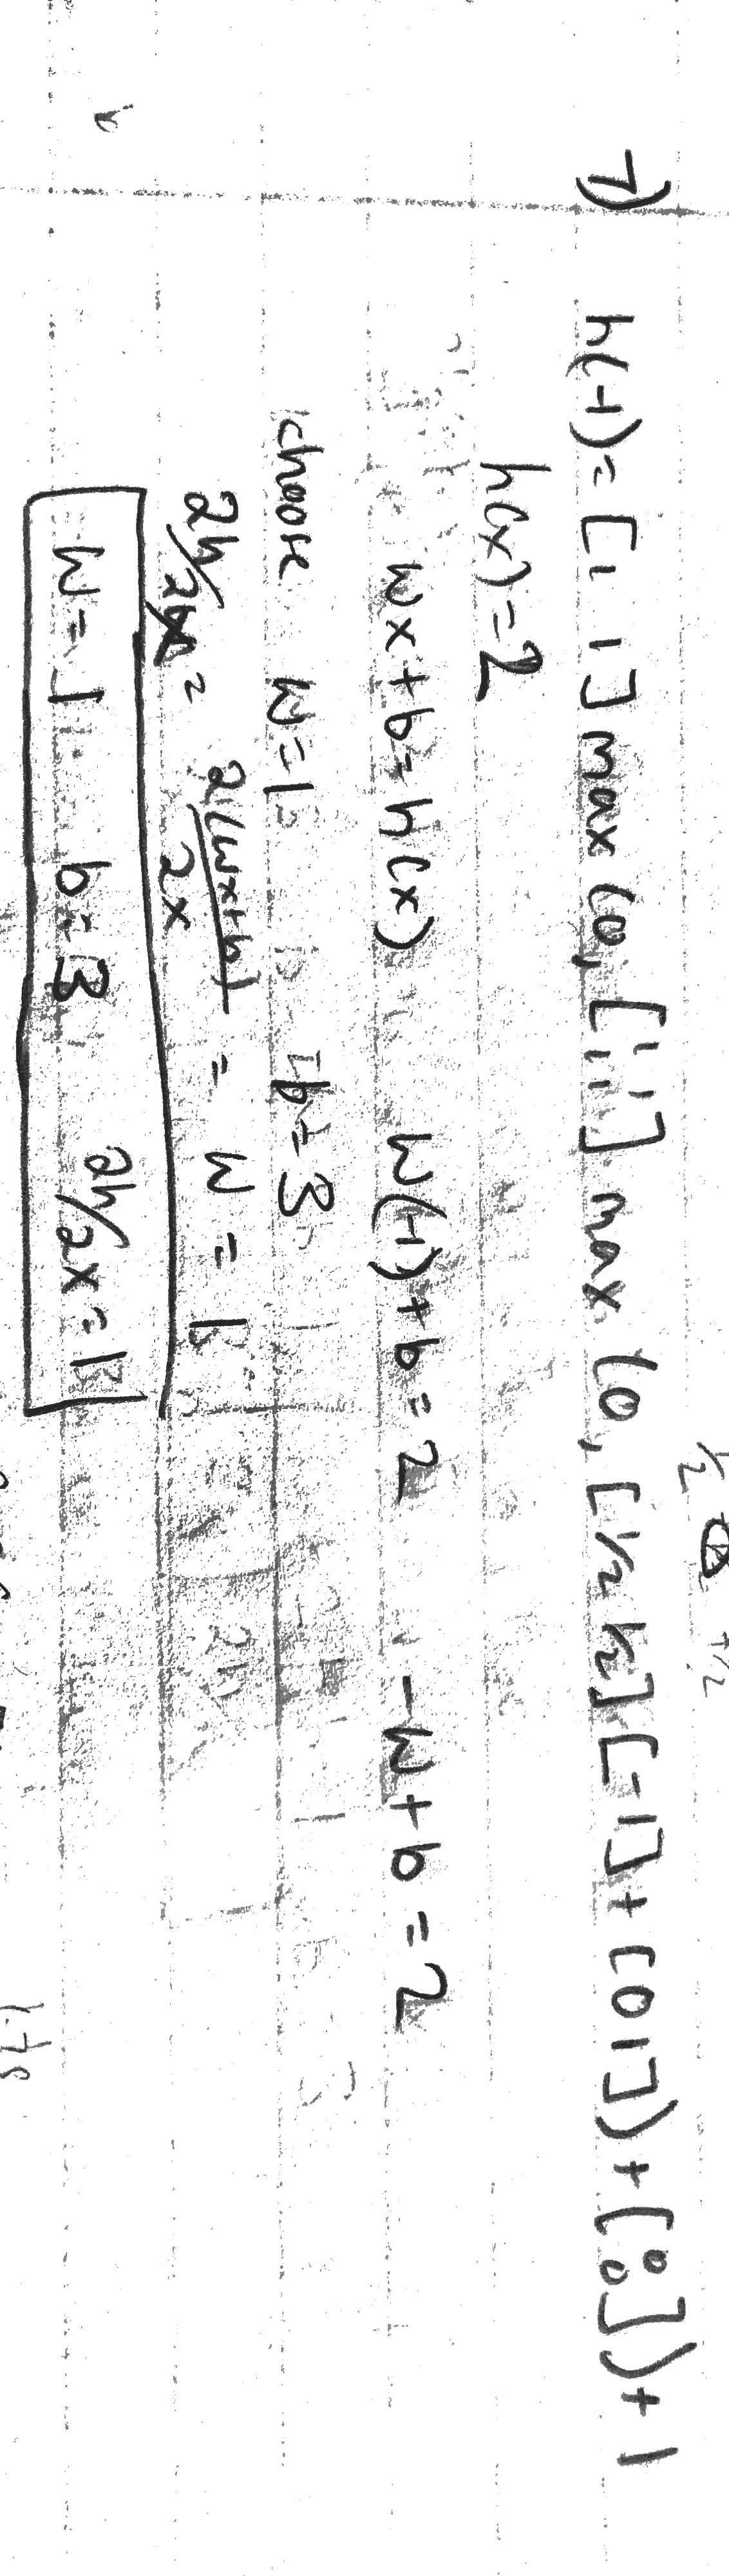 ½ +½
7) h(-1) = [1 1] max (0, [1 1 1 1] max (0, [½ ½] [-1] + [0 1]) + [0 0]) + 1
h(x) = 2
wx + b = h(x) w(-1) + b = 2 -w + b = 2
choose w = 1 b = 3
∂h/∂x = ∂(wx+b)/∂x = w = 1
w = 1 b = 3 ∂h/∂x = 1